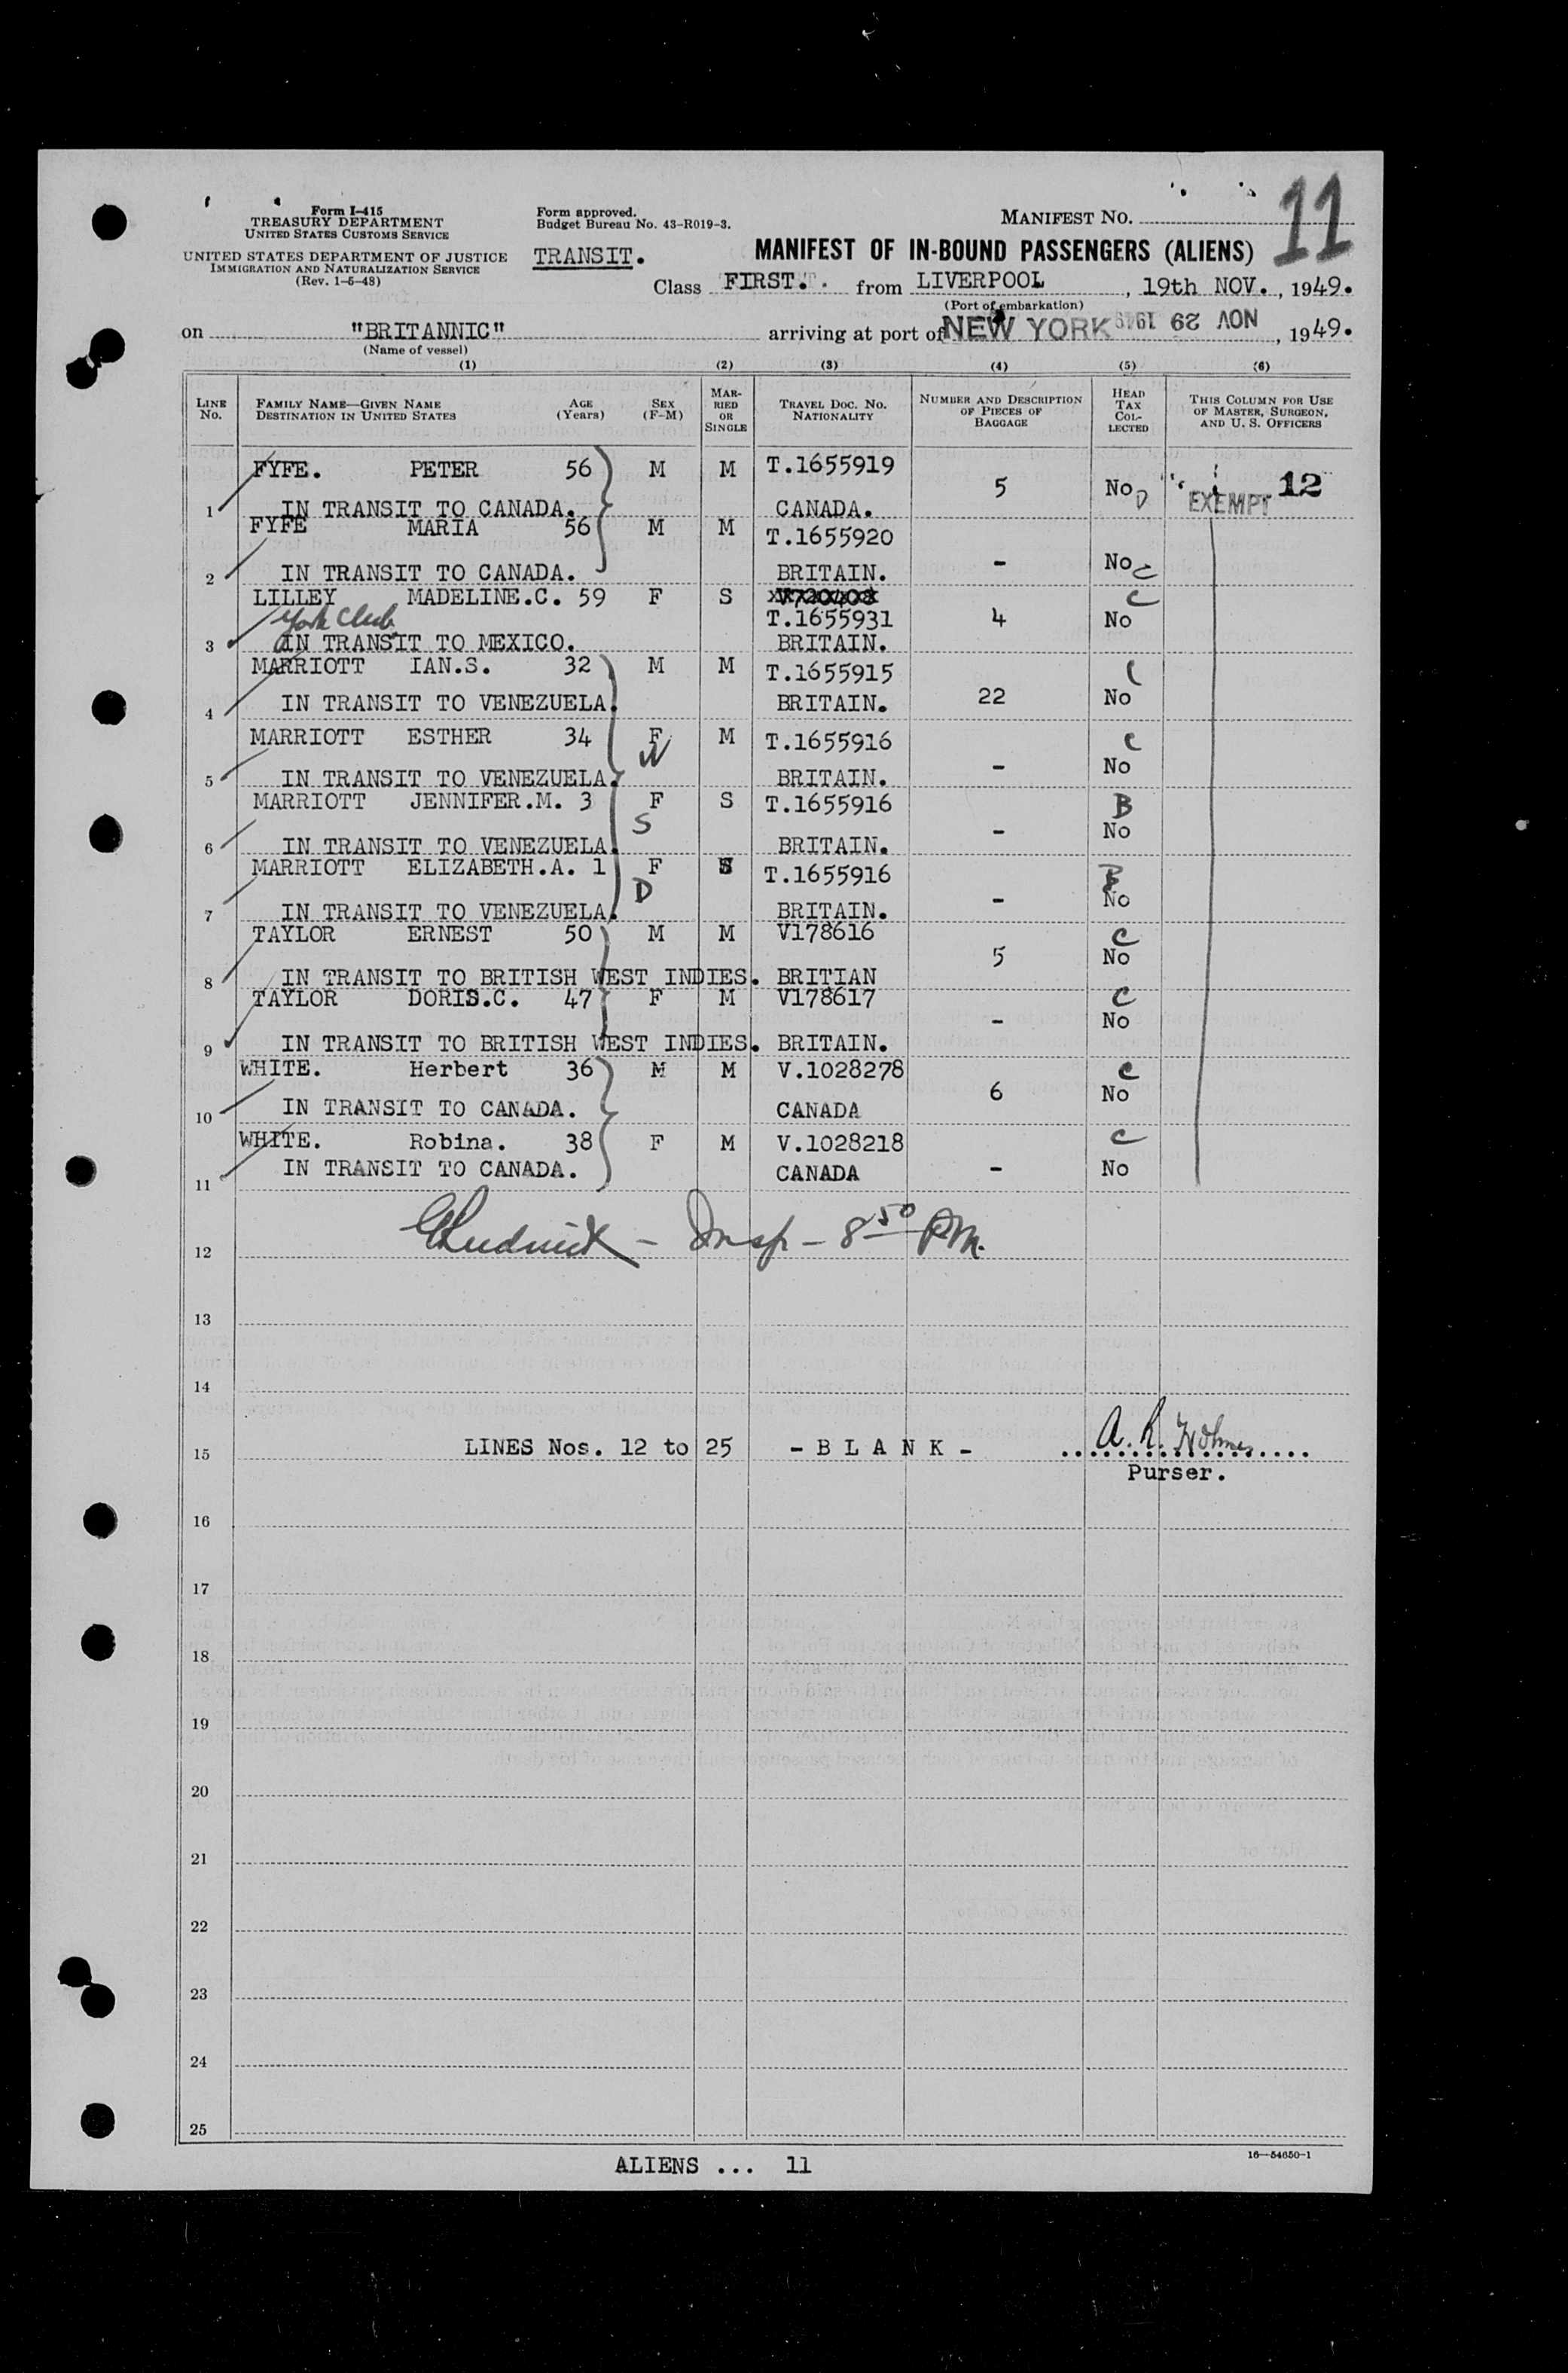 11
Form I-415
TREASURY DEPARTMENT
UNITED STATES CUSTOMS SERVICE
UNITED STATES DEPARTMENT OF JUSTICE
IMMIGRATION AND NATURALIZATION SERVICE
(Rev. 1-5-48)
Form approved.
Budget Bureau No. 43-R019-3.
TRANSIT.
MANIFEST NO.
MANIFEST OF IN-BOUND PASSENGERS (ALIENS)
Class FIRST. from LIVERPOOL, 19th NOV., 1949.
(Port of embarkation)
on "BRITANNIC" arriving at port of NEW YORK NOV 29 1949, 1949.
(Name of vessel)
(1) (2) (3) (4) (5) (6)
LINE No. FAMILY NAME—GIVEN NAME DESTINATION IN UNITED STATES AGE (Years) SEX (F-M) MARRIED OR SINGLE TRAVEL DOC. NO. NATIONALITY NUMBER AND DESCRIPTION OF PIECES OF BAGGAGE HEAD TAX COLLECTED THIS COLUMN FOR USE OF MASTER, SURGEON, AND U. S. OFFICERS
FYFE. PETER 56 M M T.1655919 5 No EXEMPT 12
1 IN TRANSIT TO CANADA. CANADA.
FYFE MARIA 56 M M T.1655920 - No C
2 IN TRANSIT TO CANADA. BRITAIN.
LILLEY MADELINE.C. 59 F S C
York Club T.1655931 4 No
3 IN TRANSIT TO MEXICO. BRITAIN.
MARRIOTT IAN.S. 32 M M T.1655915
4 IN TRANSIT TO VENEZUELA. BRITAIN. 22 No
MARRIOTT ESTHER 34 F M T.1655916 C
W
5 IN TRANSIT TO VENEZUELA. BRITAIN. - No
MARRIOTT JENNIFER.M. 3 F S T.1655916 B
S
6 IN TRANSIT TO VENEZUELA. BRITAIN. - No
MARRIOTT ELIZABETH.A. 1 F S T.1655916 B
D
7 IN TRANSIT TO VENEZUELA. BRITAIN. - No
TAYLOR ERNEST 50 M M V178616 5 C No
8 IN TRANSIT TO BRITISH WEST INDIES. BRITIAN
TAYLOR DORIS.C. 47 F M V178617 - C No
9 IN TRANSIT TO BRITISH WEST INDIES. BRITAIN.
WHITE. Herbert 36 M M V.1028278 6 C No
10 IN TRANSIT TO CANADA. CANADA
WHITE. Robina. 38 F M V.1028218 C
11 IN TRANSIT TO CANADA. CANADA - No
12 - Insp - 8 50 PM.
13
14
15 LINES Nos. 12 to 25 - B L A N K - A. R. Holmes
Purser.
16
17
18
19
20
21
22
23
24
25
ALIENS ... 11
16—54650-1